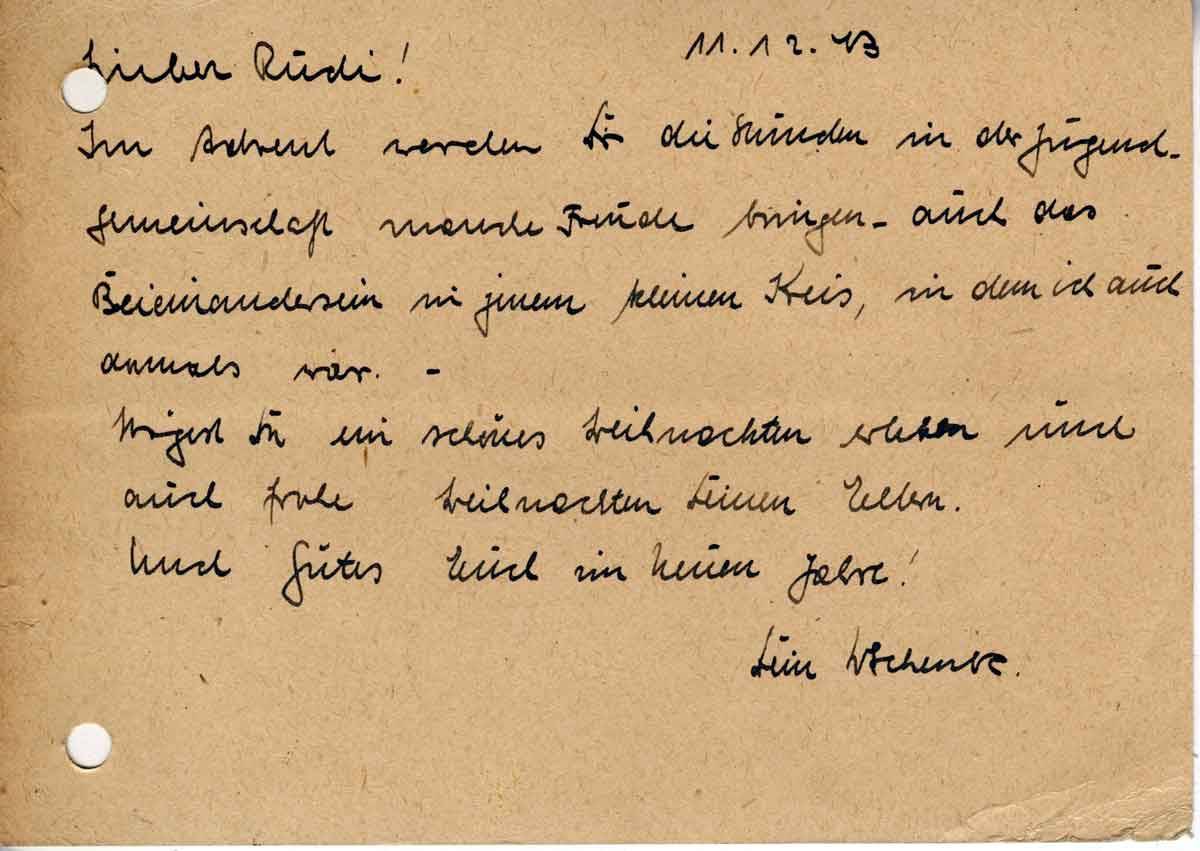 Lieber Rudi! 11.12.43
Im Advent werden Dir die Stunden in der Jugend-
gemeinschaft manche Freude bringen - auch das
Beieinandersein in jenem kleinen Kreis, in dem ich auch
damals war. -
Mögest Du ein schönes Weihnachten erleben und
auch frohe Weihnachten Deinen Eltern.
Und Gutes Euch im Neuen Jahre!
Dein